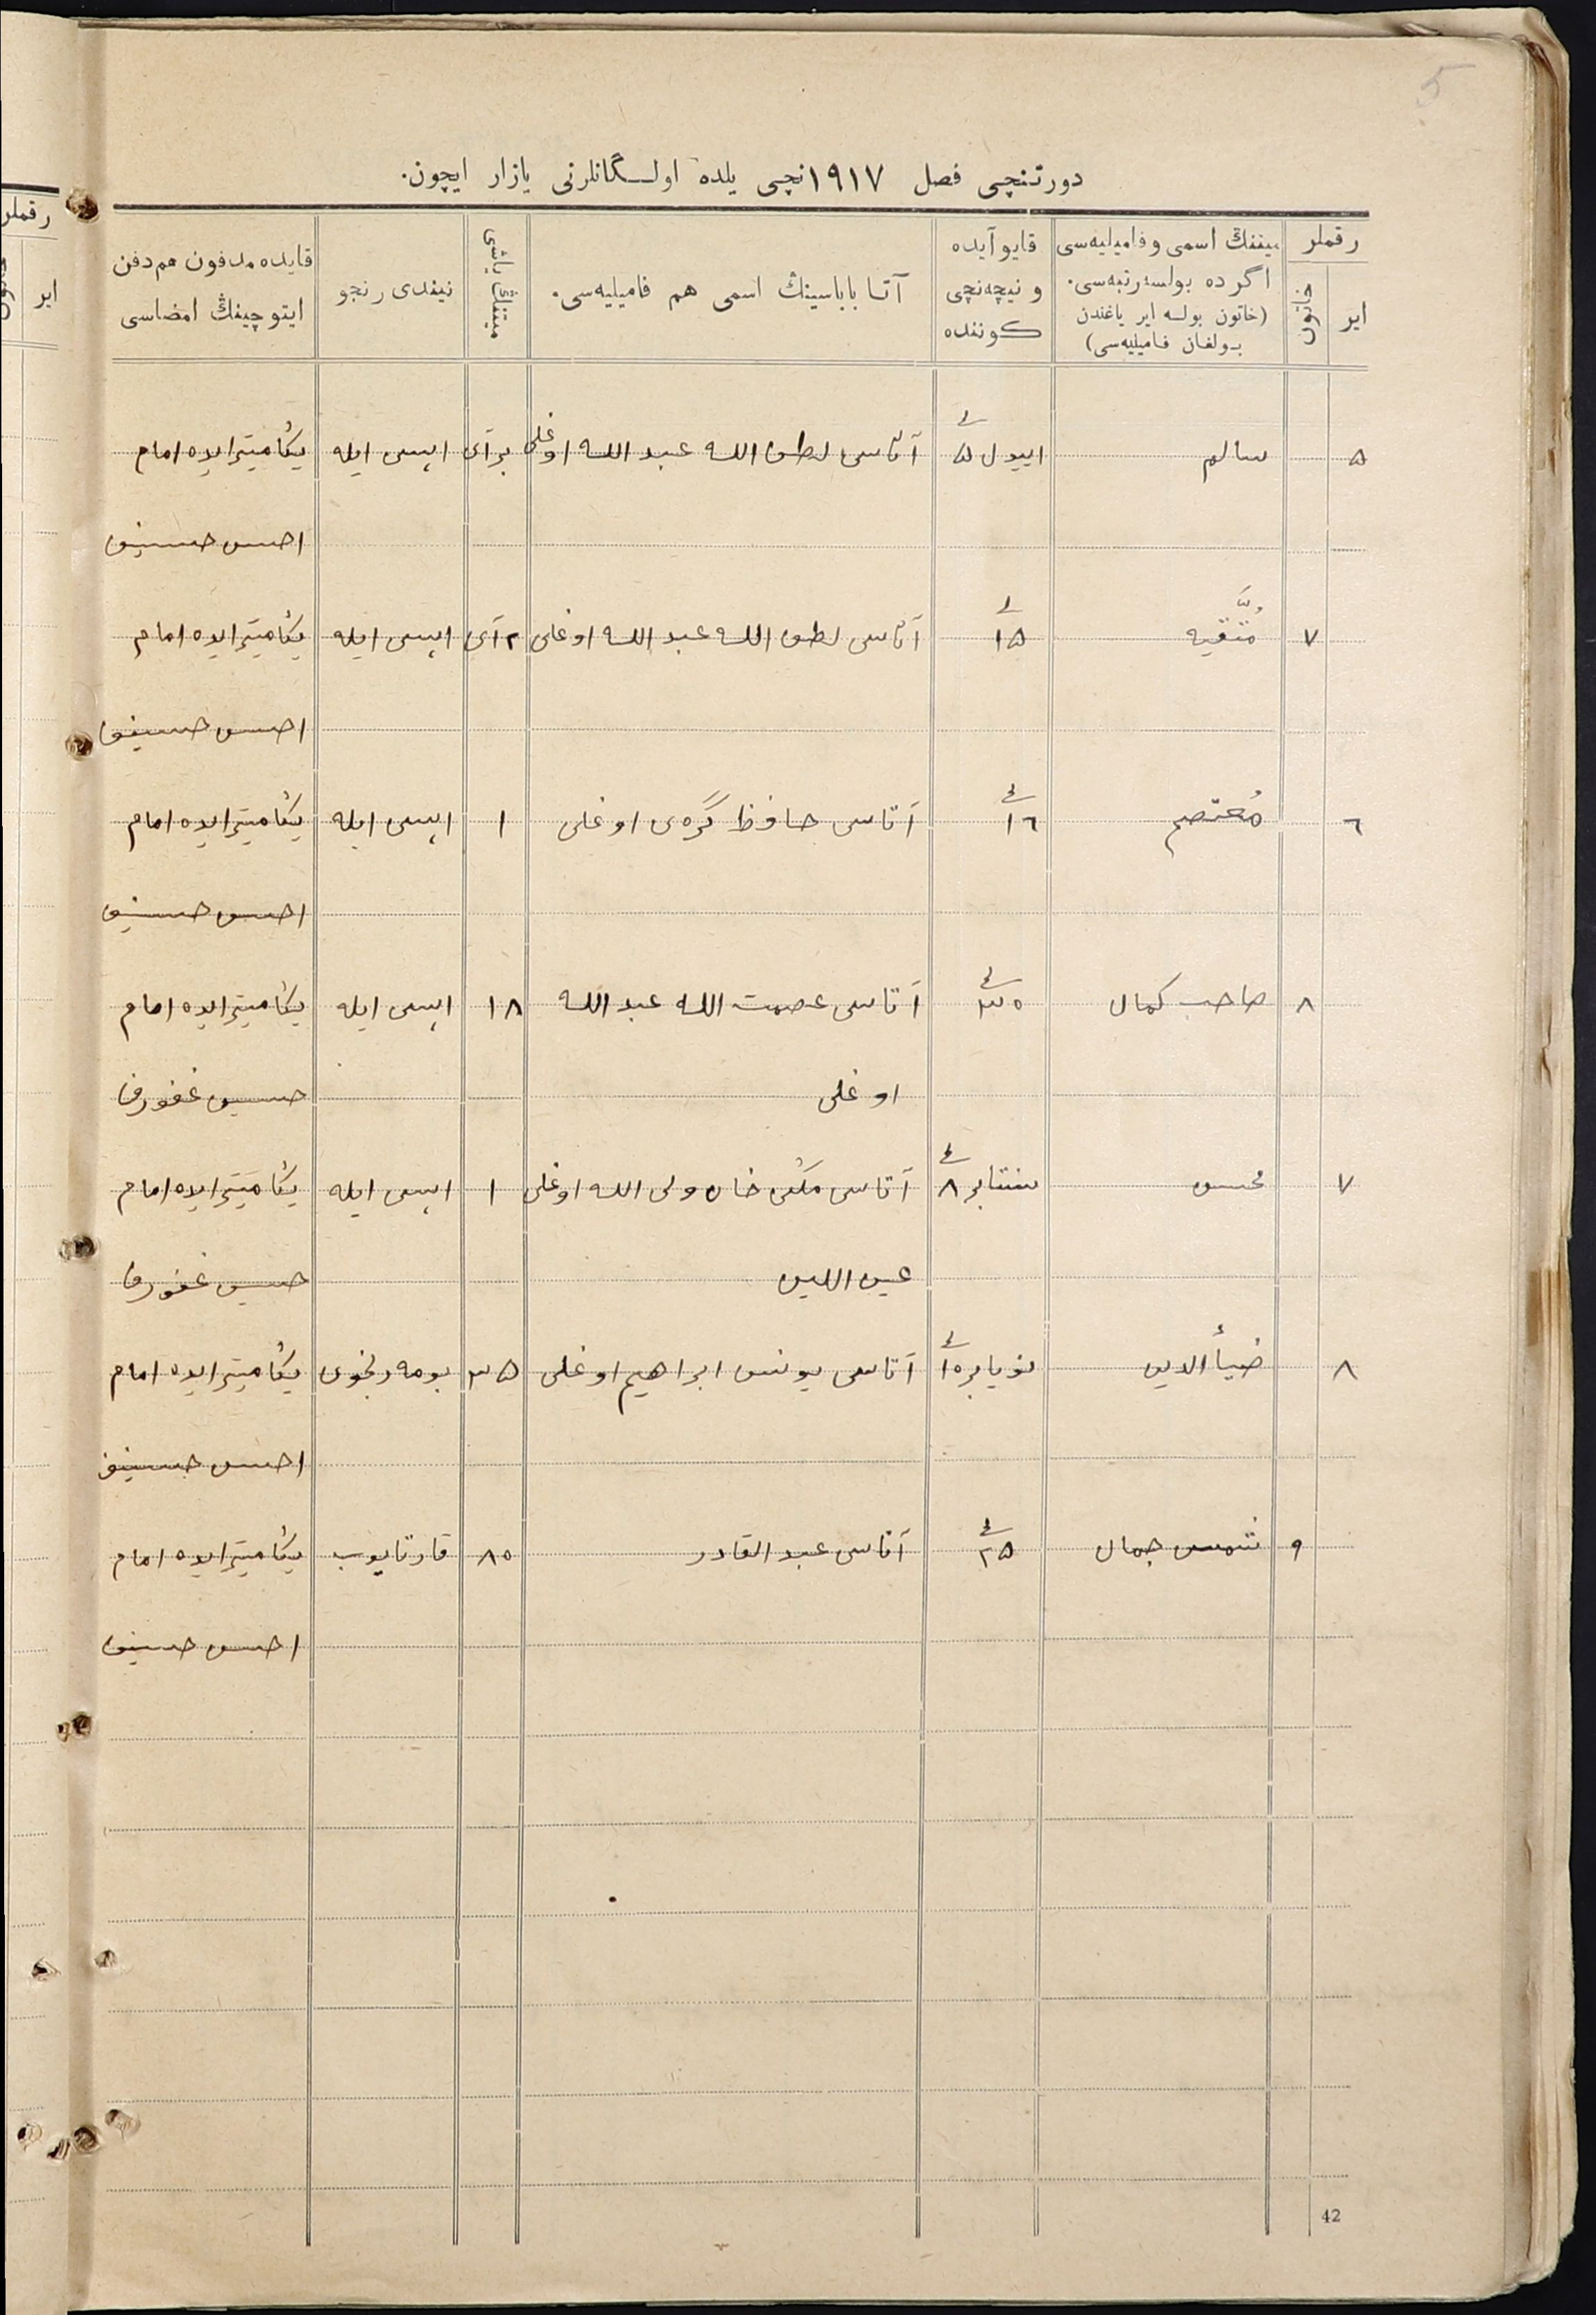 5
دورتنچی فصل ١٩١٧ نچی یلده اولـگانلرنی یازار ایچون.
رقملر
ایر
خاتون
میتنڭ اسمی و فامیلیه‌سی اگرده بولسه رتبه‌سی. (خاتون بولسه ایر یاغندن بولغان فامیلیه‌سی)
قایو آیده و نیچه‌نچی کوننده
آتا باباسینڭ اسمی هم فامیلیه‌سی.
میتنڭ یاشی
نیندی رنجو
قایده مدفون هم دفن ایتوچینڭ امضاسی
٥ سالم اییول ٥ آتاسی لطف الله عبد الله اوغلی بر آی ایسی ایله یڭا میترایده امام
احسن حسینف
٧ مُتَّقیه ١٥ آتاسی لطف الله عبد الله اوغلی ٢ آی ایسی ایله یڭا میترایده امام
احسن حسینف
٦ مُعتصم ١٦ آتاسی حافظ گره‌ی اوغلی ١ ایسی ایله یڭا میترایده امام
احسن حسینف
٨ صاحب کمال ٣٠ آتاسی عصمت الله عبد الله ١٨ ایسی ایله یڭا میترایده امام
اوغلی حسین غفورف
٧ محسن سنتابر ٨ آتاسی خان ولی الله اوغلی ١ ایسی ایله یڭا میترایده امام
عین الدین حسین غفورف
٨ ضیأ الدین نویابر ١٥ آتاسی یونس ابراهیم اوغلی ٣٥ یڭا میترایده امام
احسن حسینف
٩ شمس جمال ٢٥ آتاسی عبد القادر ٨٥ قارتایوب یڭا میترایده امام
احسن حسینف
42
رقملر
ایر